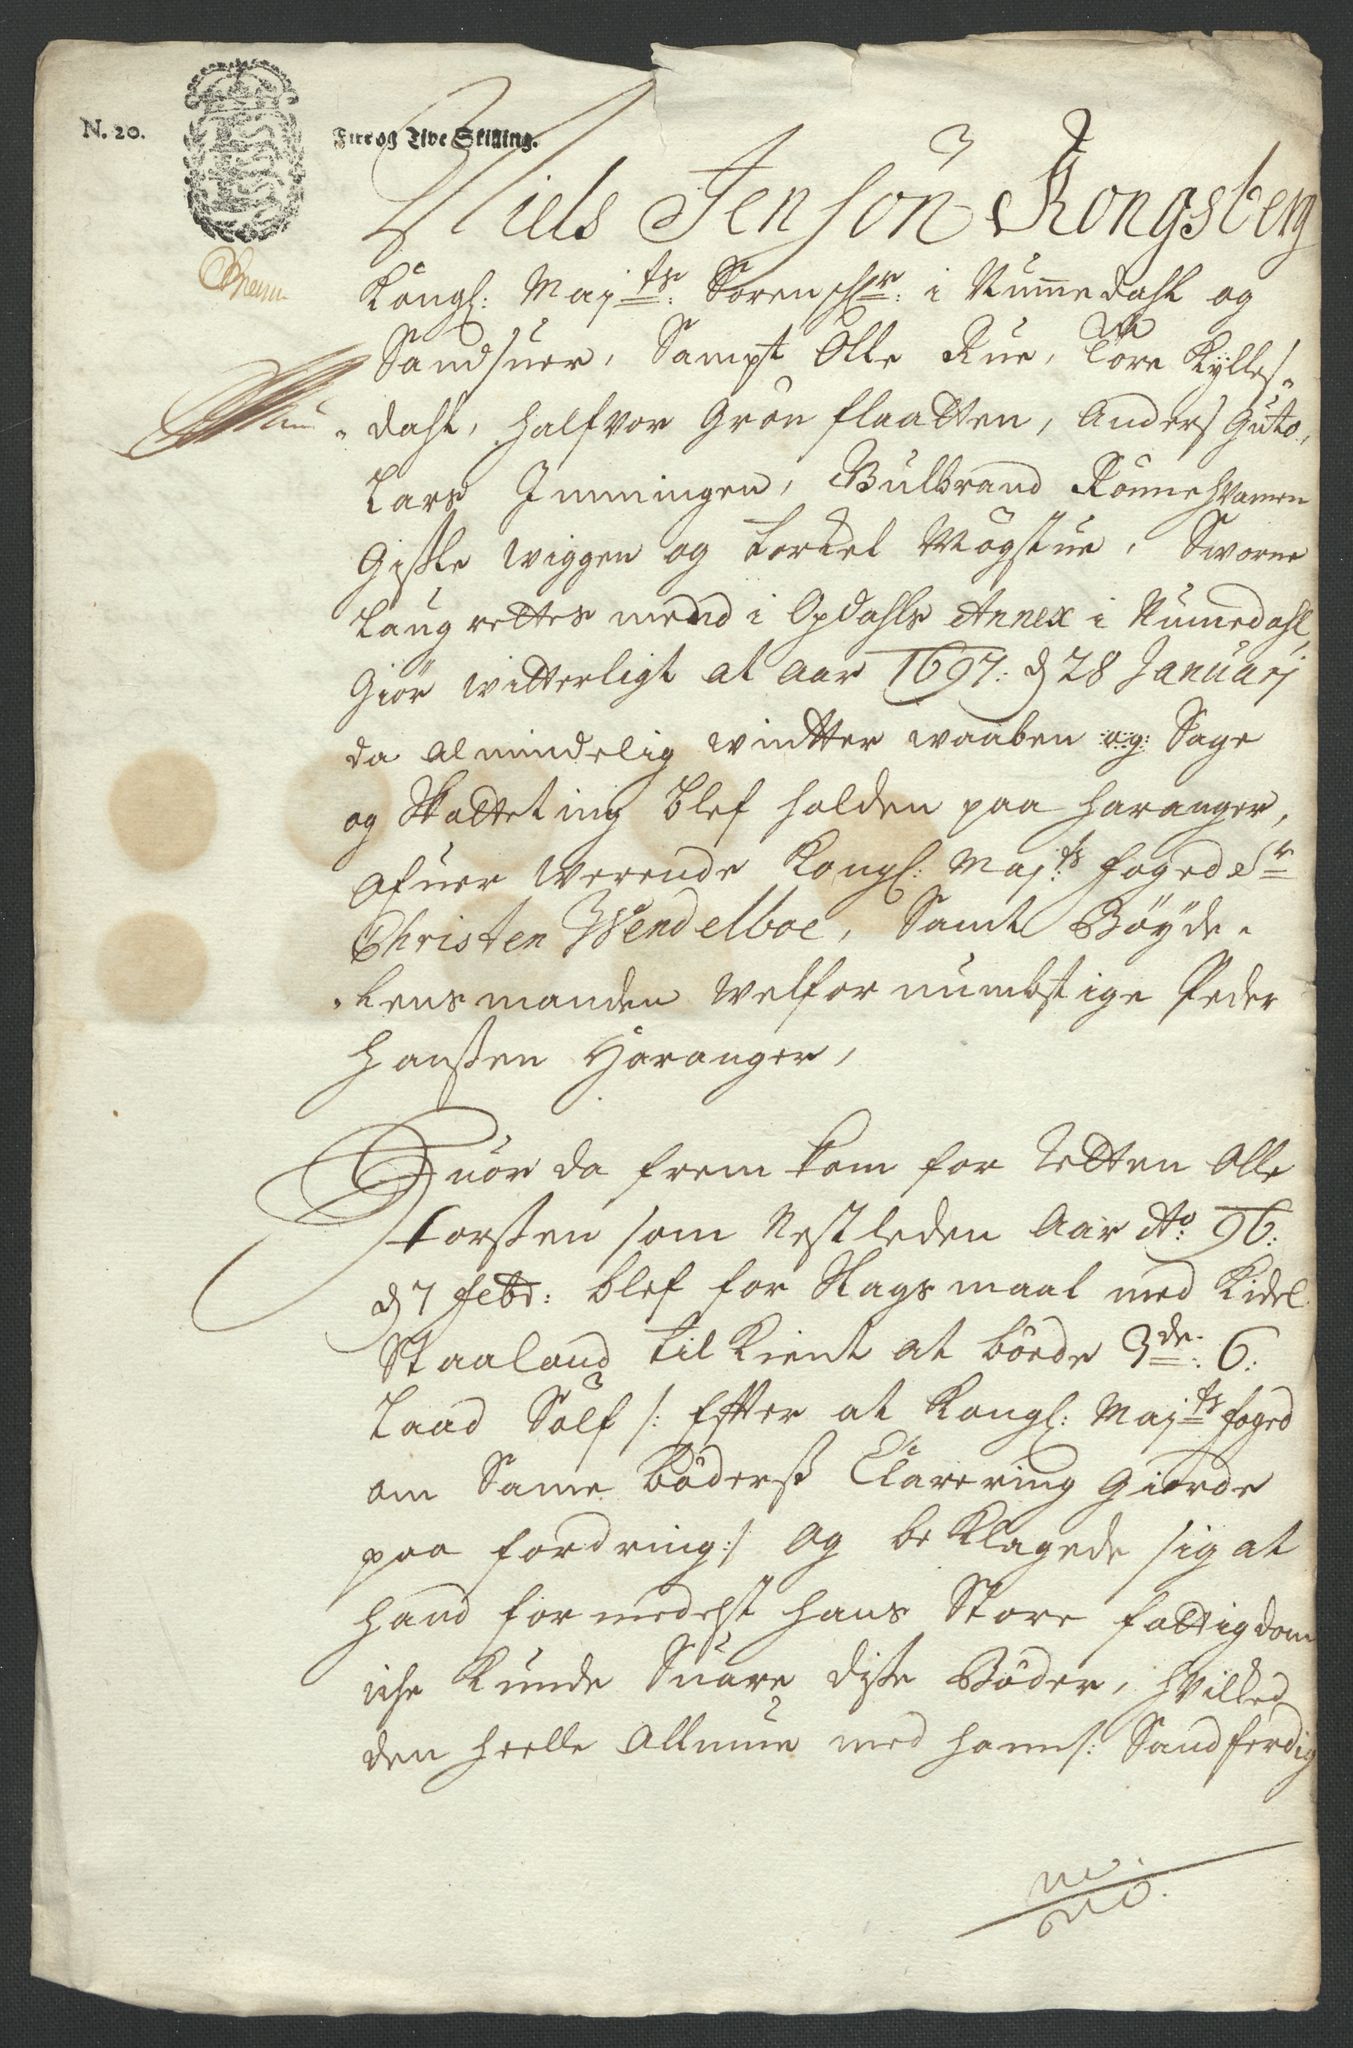 N. 20.
Fire og Tive Skilling.
Niels Jensøn Kongsberg
Kongl: Maj:ts: Sorenschr: i Nummedahl og
Sandsuer, Sampt Olle Rue, Tore Kylles-
dahl, Halfvor Grønflaatten, Anders Guto,
Lars Imningen, Gulbrand Rønnehvamen
Gisle Wiggen og Torkel Mogstue, Sworne
Laugrettesmend i Opdahls Annex i Numedahl,
Giør witterligt at Aar 1697: d 28 Januarj
da Almindelig wintter waaben og: Sage
og Skatteting blef holden paa Haranger,
Ofuerwerende Kongl: Maj:ts foged Sr
Christen Wendelboe, Samt Böyde-
Lensmanden Welfornumbstige Peder
Hanßen Haranger,
Huor da fremkom for Retten Olle
Torßen som Nestleden Aar Ao 96:
d 7 Febr: blef for Slagsmaal med Kidel
Staaland tilkient at bøede 3de: 6:
Laad Sølf /: Effter at Kongl: Maj:ts foged
om Same bøderß Clarering Giorde
paafordring :/ og beklagede sig at
hand formedelst hans Store fattigdom
iche kunde Suare diße Bøder, hvilled
den heelle Allmue med ham /: Sandferdig